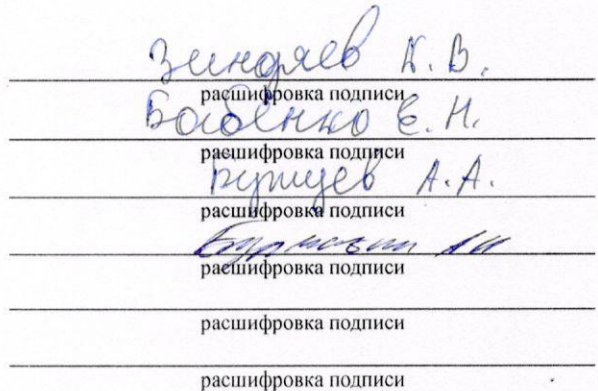 Зиндяев К. В.
расшифровка подписи
Бабенко Е. Н.
расшифровка подписи
А.А.
расшифровка подписи
расшифровка подписи
расшифровка подписи
расшифровка подписи